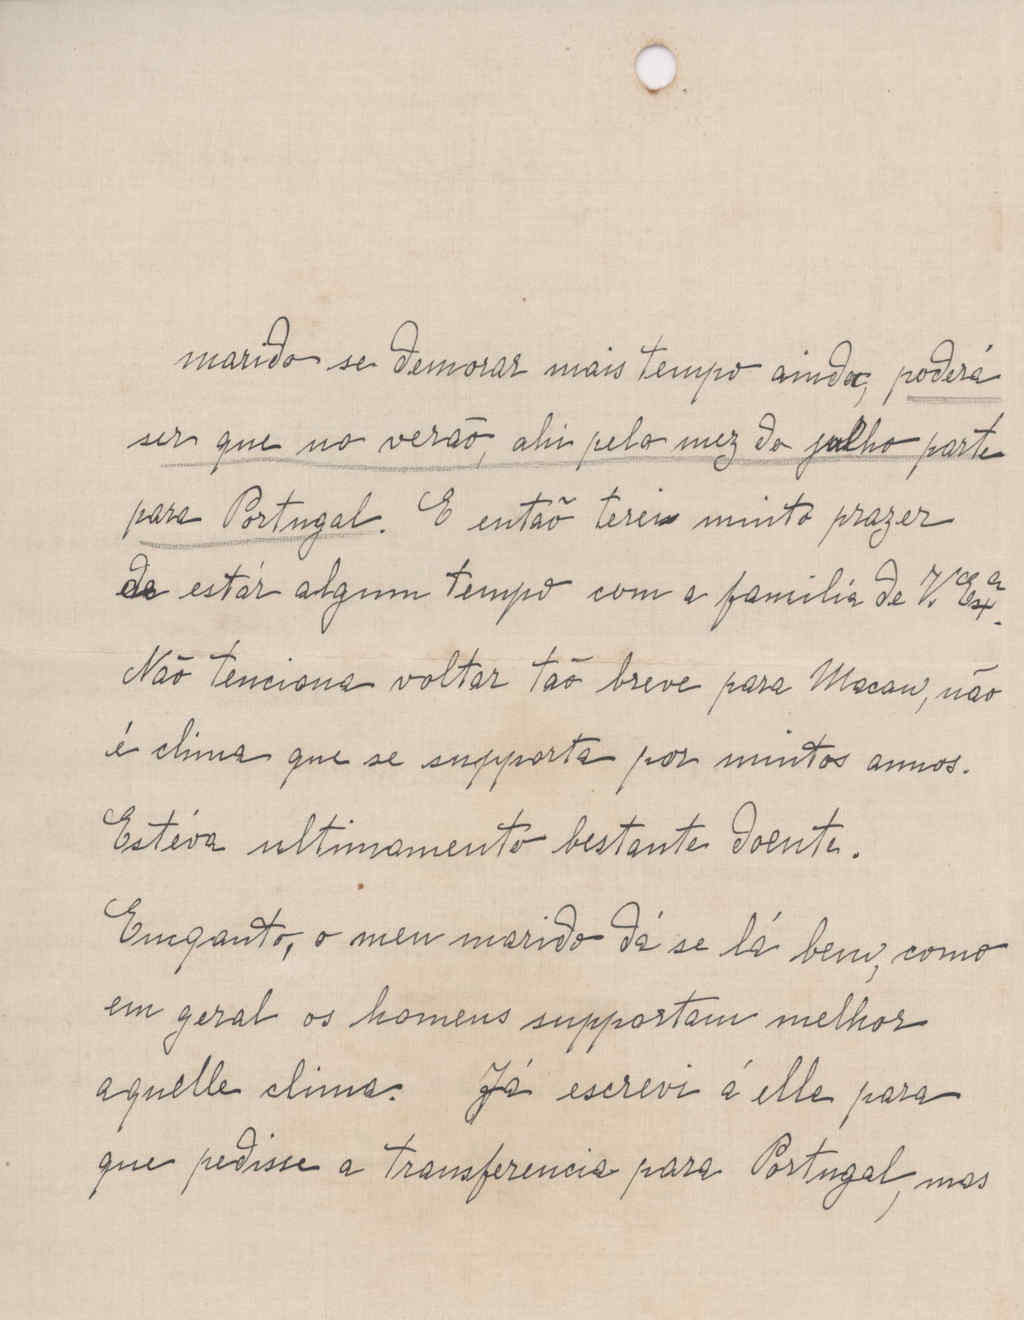 marido se demorar mais tempo ainda, poderá
ser que no verão, ahi pelo mez de julho parte
para Portugal. E então terei muito prazer
de estár algum tempo com a familia de V. Exª.
Não tenciona voltar tão breve para Macau, não
é clima que se supporta por muitos annos.
Estéva ultimamente bestante doente.
Emquanto, o meu marido dá se lá bem, como
em geral os homens supportam melhor
aquelle clima. Já escrevi á elle para
que pedisse a transferencia para Portugal, mas